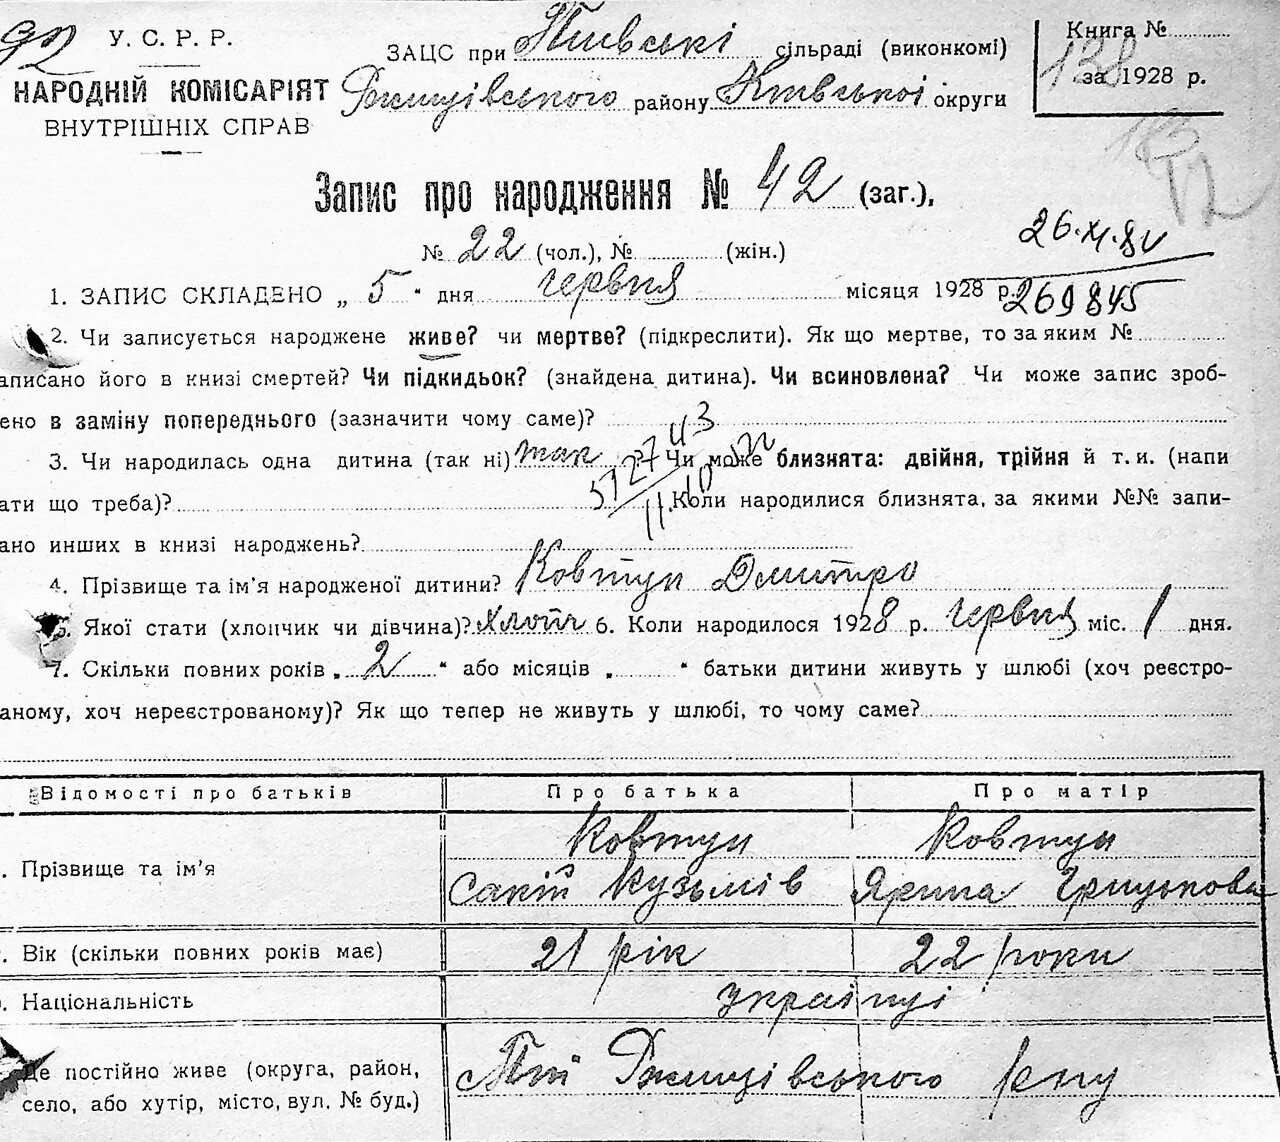 У. С. Р. Р.
НАРОДНІЙ КОМІСАРІЯТ
ВНУТРІШНІХ СПРАВ
ЗАЦС при сільраді (виконкомі)
Ржищівського району Київської округи
Книга №
138
за 1928 р.
Запис про народження № 42 (заг.),
№ 22 (чол.), № (жін.)
269845
1. ЗАПИС СКЛАДЕНО „ 5 “ дня червня місяця 1928 р.
2. Чи записується народжене живе? чи мертве? (підкреслити). Як що мертве, то за яким №
аписано його в книзі смертей? Чи підкидьок? (знайдена дитина). Чи всиновлена? Чи може запис зроб-
ено в заміну попереднього (зазначити чому саме)?
3. Чи народилась одна дитина (так ні) так ? Чи може близнята: двійня, трійня й т. и. (напи
ати що треба)? Коли народилися близнята, за якими №№ запи-
ано инших в книзі народжень?
4. Прізвище та ім'я народженої дитини? Ковтун Дмитро
5. Якої стати (хлопчик чи дівчина)? хлопч 6. Коли народилося 1928 р. червня міс. 1 дня.
7. Скільки повних років „ 2 “ або місяців „ “ батьки дитини живуть у шлюбі (хоч реєстро-
аному, хоч нереєстрованому)? Як що тепер не живуть у шлюбі, то чому саме?
Відомості про батьків Про батька Про матір
Прізвище та ім'я Ковтун Ковтун
Кузьмів Ярина Грицькова
Вік (скільки повних років має) 21 рік 22 роки
Національність українці
Де постійно живе (округа, район,
село, або хутір, місто, вул. № буд.) Ржищівського р-ну